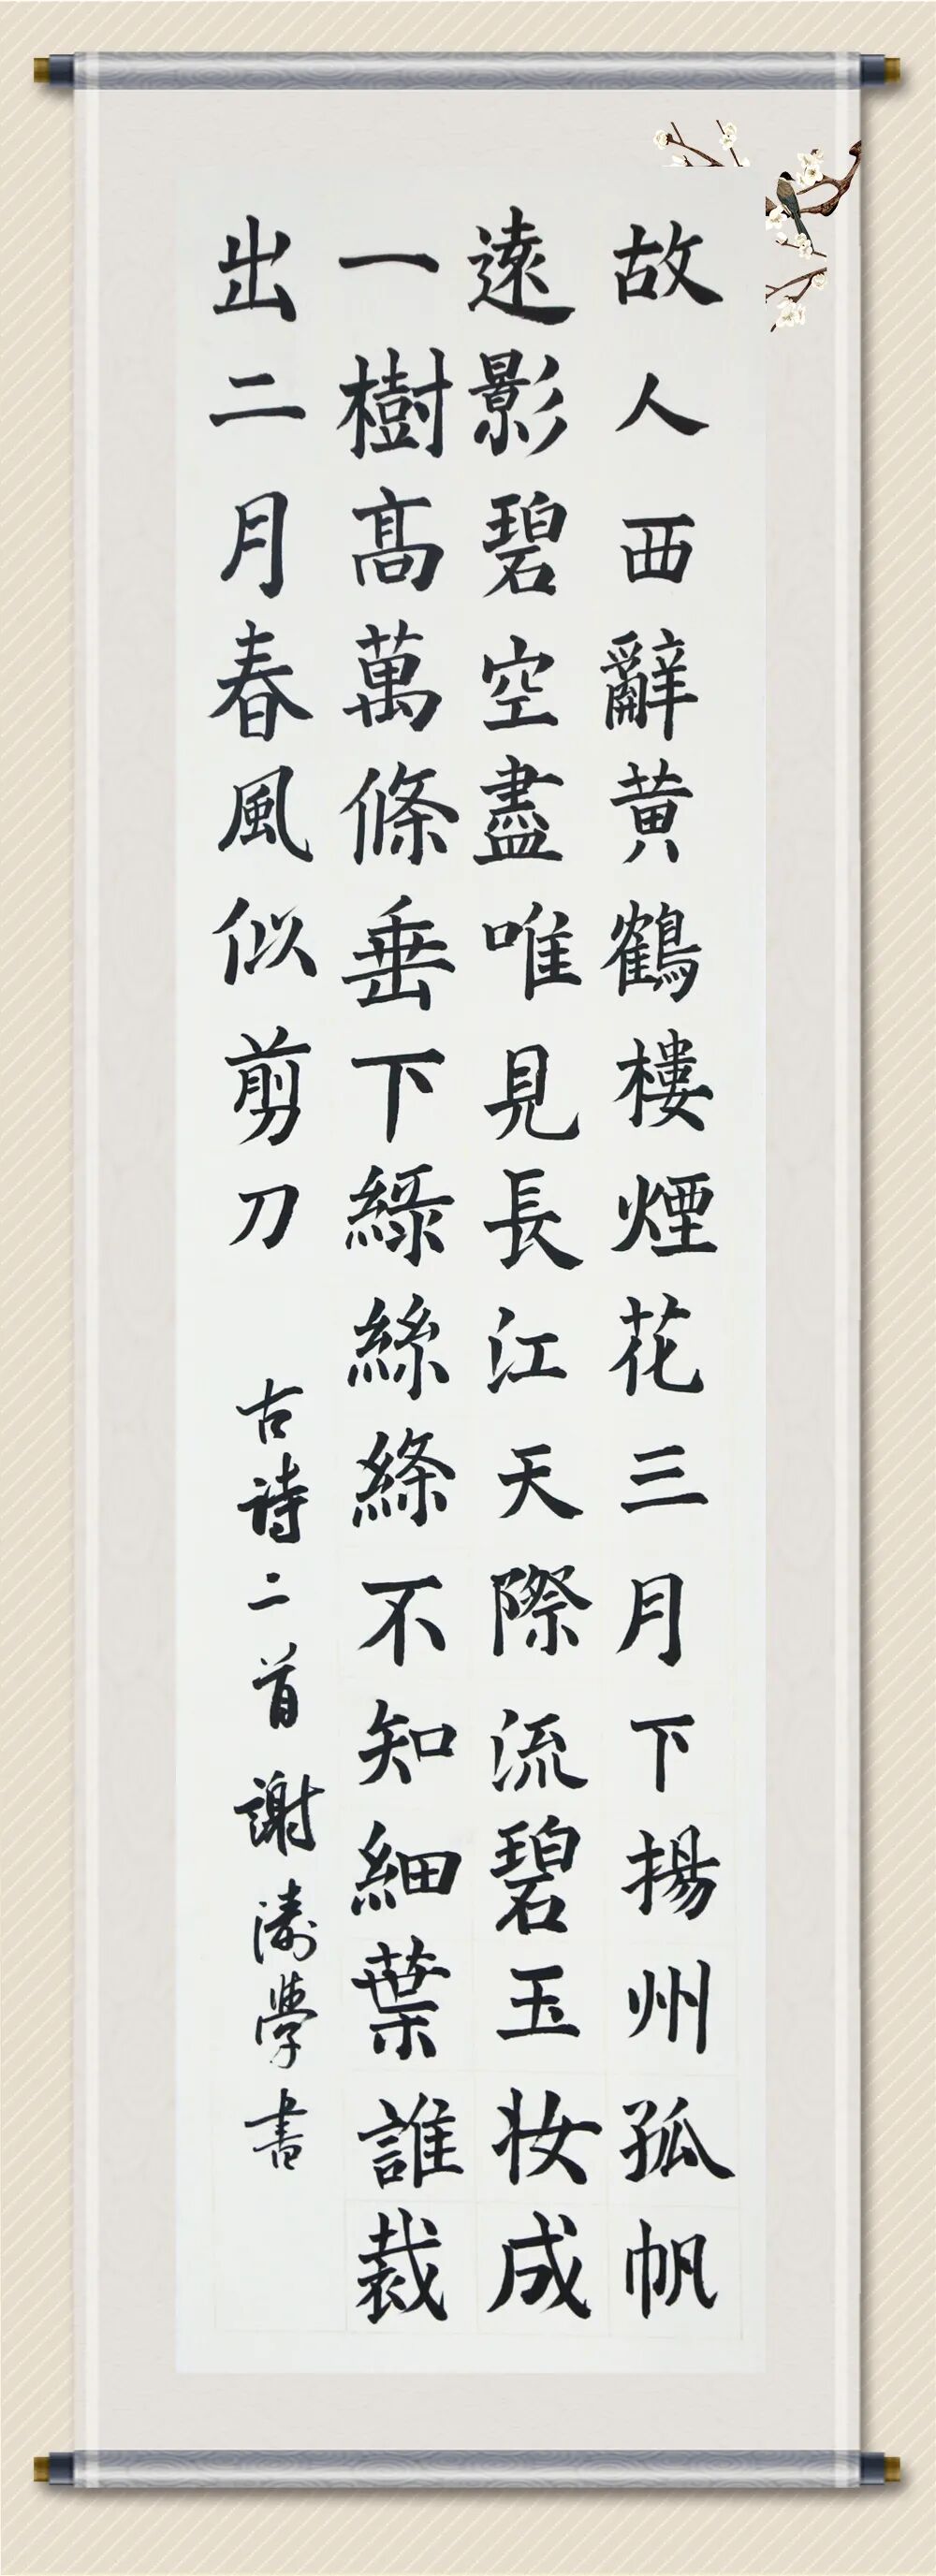 故人西辭黄鶴樓煙花三月下揚州孤帆
遠影碧空盡唯見長江天際流碧玉妆成
一樹高萬條垂下綠絲絛不知細葉誰裁
出二月春風似剪刀
古詩二首 謝濤學書